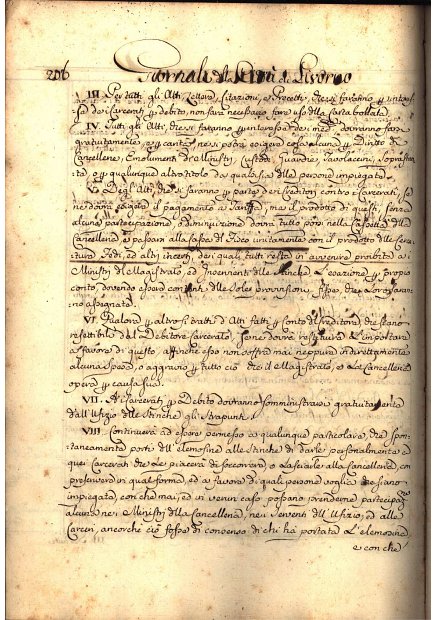 206 Giornale di Livorno
III Per tutti gli Atti, Lettere, Citazioni, e Precetti, che si faranno
sa dei Carcerati debito, non sarà necessario fare uso della Carta bollata.
IV. Tutti gli Atti, che si faranno interesse dei med. dovranno farsi
gratuitamente, e tanto ne si potrà esigere cosa alcuna Diritto di
Cancelleria, Emolumenti di Ministri, Custodi, Guardie, Tavolaccini, Soprastan
ti, o qualunque altro titolo da qualsisia delle persone impiegate.
V. Degli Atti, che si faranno parte dei Creditori contro i Carcerati, se
ne dovrà esigere il pagamento a Tariffa, ma il prodotto di questi, senza
alcuna partecipazione, o diminuzione dovrà tutto porsi nella Cassetta della
Cancelleria, e passarsi alla Cassa del Fisco unitamente con il prodotto delle
Fedi, ed altri incerti, dei quali tutti resta in avvenire proibito ai
Ministri del Magistrato, ed Inservienti delle Stinche L'esazione proprio
conto, dovendo essere contenti delle Sole provvisioni fisse, che Loro saran
no assegnate.
VI. Qualora altro si tratti d'Atti fatti conto del Creditore, che siano
refettibili dal Debitore Carcerato, se ne dovrà restituire L'importare
a favore di questo, affinchè esso non soffra mai neppure indirettamente
alcuna Spesa, o aggravio tutto ciò che il Magistrato, o La Cancelleria
operi causa sua.
VII. Ai Carcerati Debito dovranno somministrarsi gratuitamente
dall'Ufizio delle Stinche gli Strapunti.
VIII Continuerà ad essere permesso a qualunque particolare, che spon
taneamente porti dell'elemosine alle Stinche di darle personalmente a
quei Carcerati che Le piacerà di soccorrere, o Lasciarle alla Cancelleria, con
prescrivere in qual forma, ed a favore di quali persone voglia che siano
impiegate, con che mai, ed in verun caso possano prendervi partecipazione
alcuna nei Ministri della Cancelleria, nei Serventi dell'Ufizio, ed alle
Carceri, ancorchè ciò fosse di consenso di chi ha portata L'elemosina,
e con che